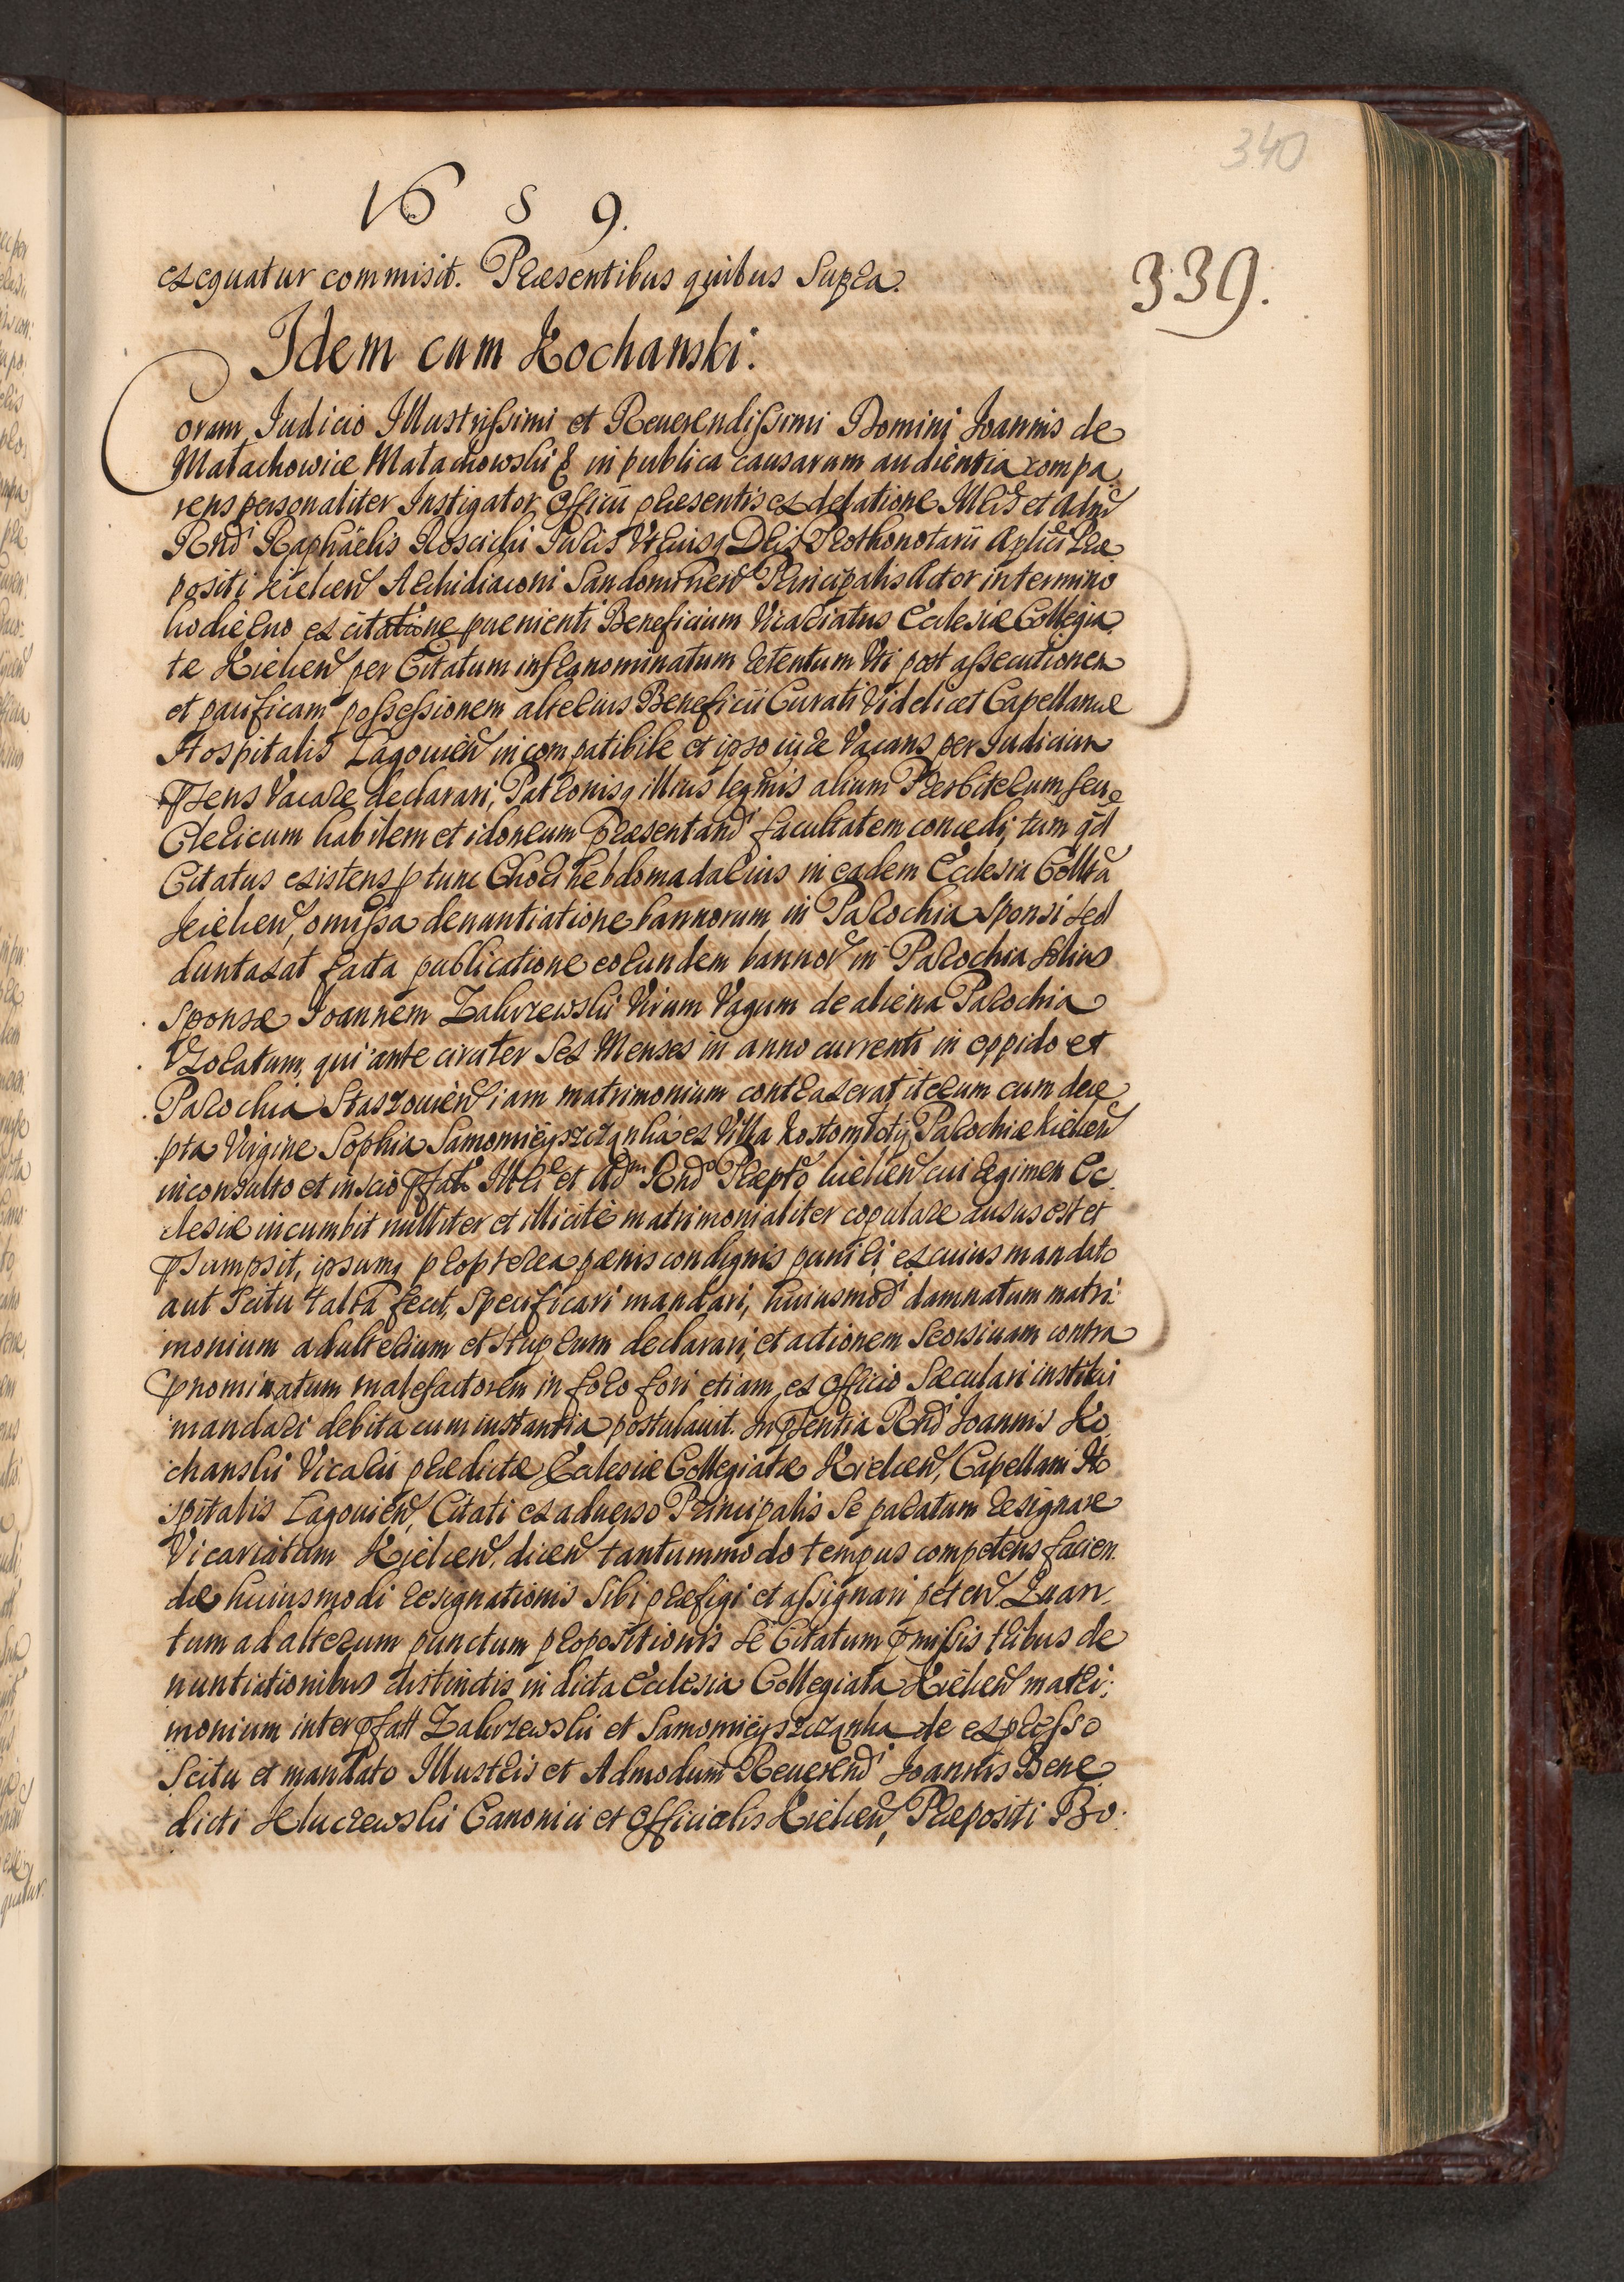 340
1689.
339.
exequatur commisit. Præsentibus quibus Supra.
Idem cum Kochanski.
Coram Iudicio Illustrissimi et Reuerendissimi Domini Joannis de
Małachowice Małachowski & in publica causarum audientia compa
rens personaliter Instigator Officii præsentis ex delatione Illris et Admo
Rndi Raphaëlis Roscicki Iuris Vtriusq Dris Prothonotarii Aplici Præ
positi Kielcen Archidiaconi Sandomirien Principalis Actor in termino
hodierno ex citatione proueniente Beneficium Vicariatus Ecclesiæ Collegia
tæ Kielcen per Citatum infranominatum retentum Vti post assecutionem
et pacificam possessionem alterius Beneficii Curati Videlicet Capellaniæ
Hospitalis Łagouien incompatibile et ipso iure Vacans per Iudicium
pſens Vacare declarari, Patronisq illius legmis alium Præsbiterum seu
Clericum habilem et idoneum præsentandi facultatem concedi, tum qd
Citatus existens p tunc Chori hebdomadarius in eadem Ecclesia Collta
Kielcen, omissa denuntiatione bannorum in Parochia Sponsi sed
duntaxat facta publicatione eorundem bannor in Parochia solius
Sponsæ Joannem Zakrzewski Virum Vagum de aliena Parochia
Vxoratum, qui ante circiter Sex Menses in anno currenti in oppido et
Parochia Staszouien iam matrimonium contraxerat iterum cum dece
pta Virgine Sophia Samomięyszczanka ex Villa Kostomłoty Parochiæ Kielcen
inconsulto et inscio pfato Illri et Adm Rndo Præpto Kielcen cui regimen Ec
clesiæ incumbit nulliter et illicitè matrimonialiter copulare ausus est et
pſumpsit, ipsumq propterea pœnis condignis puniri, ex cuius mandato
aut Scitu talia fecit, specificari mandari, huiusmodi damnatum matri
monium adulterium et stuprum declarari, et actionem Seorsiuam contra
pnominatum malefactorem in foro fori etiam ex officio Sæculari institui
mandari debita cum instantia postulauit. In pſentia Rndi Joannis Ko
chanski Vicarii prædictæ Ecclesiæ Collegiatæ Kielcen, Capellani Ho
spitalis Łagouien, Citati ex aduerso Principalis se paratum resignare
Vicariatum Kielcen, dicen tantummodo tempus competens facien
dæ huiusmodi resignationis sibi præfigi et assignari peten. Quan
tum ad alterum punctum propositionis se Citatum pmissis tribus de
nuntiationibus distinctis in dicta Ecclesia Collegiata Kielcen matri
monium inter pfatt Zakrzewski et Samomięyszczanka de expresso
Scitu et mandato Illustris et Admodum Reuerendi Joannis Bene
dicti Kluczewski Canonici et Officialis Kielcen, Præpositi Bo